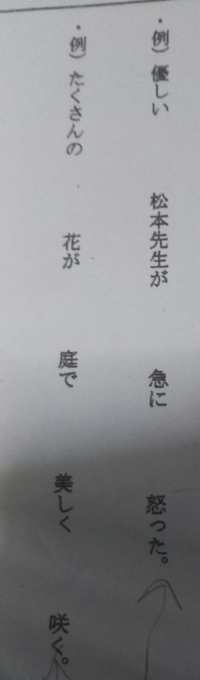 ・例）優しい　松本先生が　急に　怒った。
・例）たくさんの　花が　庭で　美しく　咲く。